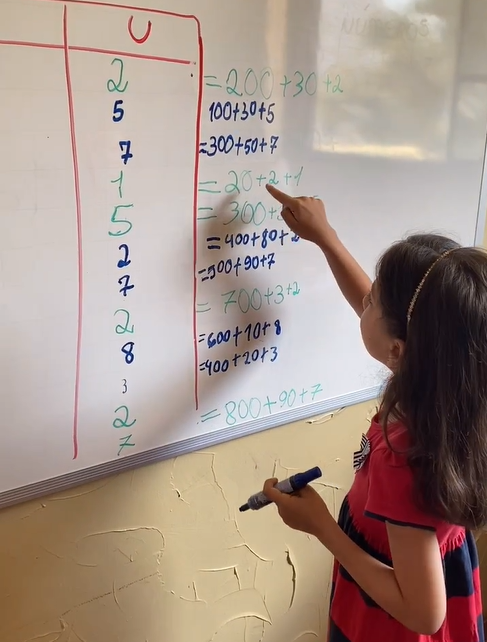 U
2 =200+30+2
5 100+30+5
7 =300+50+7
1 =20+2+1
5 =300+
2 =400+80+2
7 =500+90+7
2 =700+3+2
8 =600+10+8
3 =400+20+3
2
7 =800+90+7